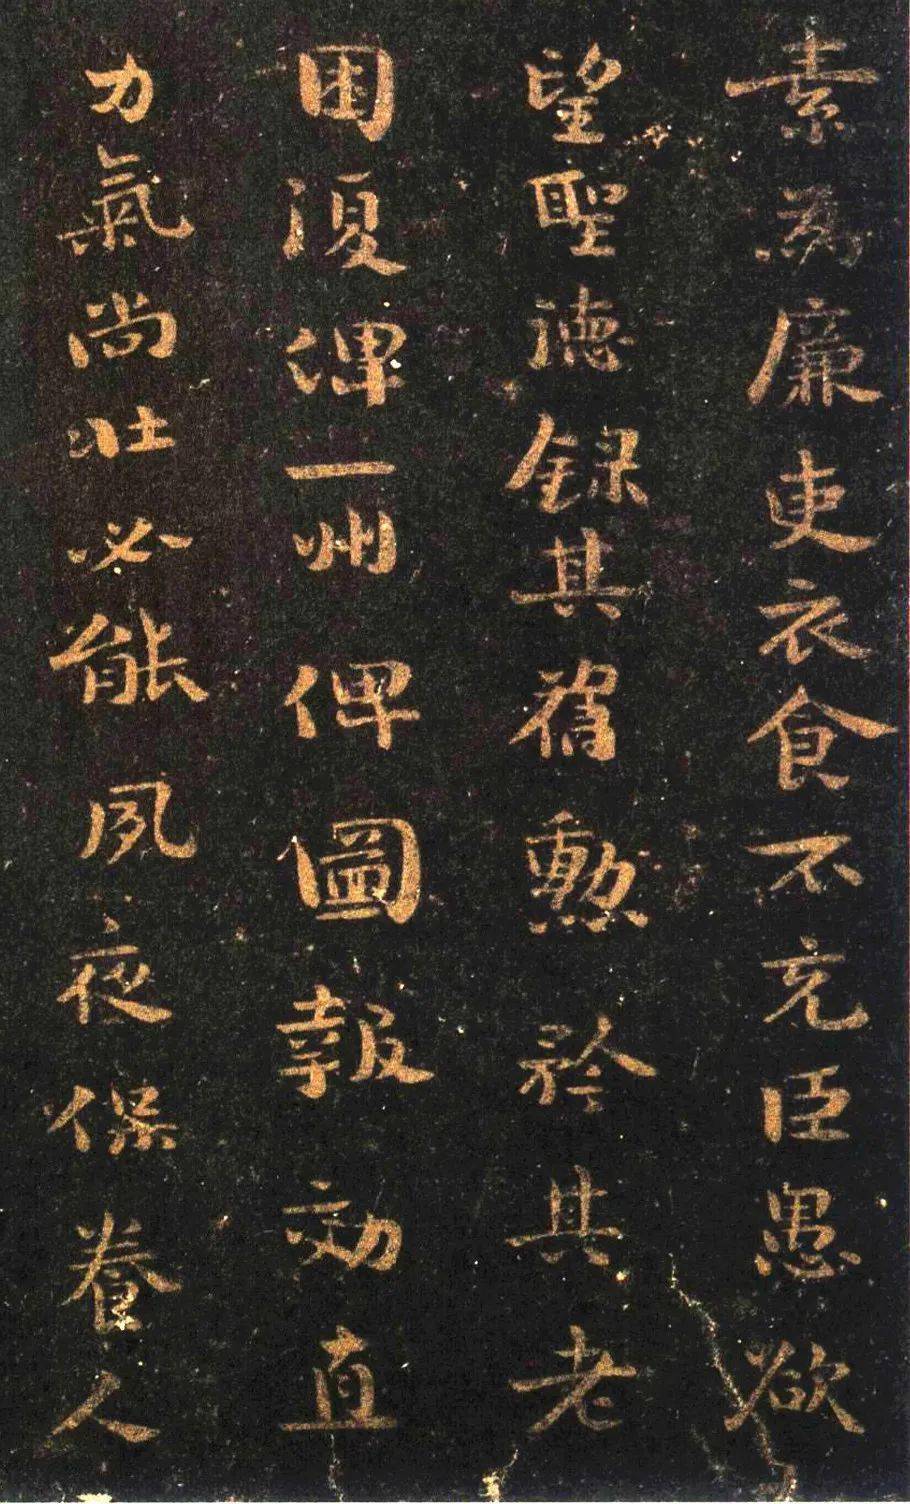 素為廉吏衣食不充臣愚欲
望聖德錄其舊勳矜其老
困復俾一州俾圖報効直
力氣尚壯必能夙夜保養人